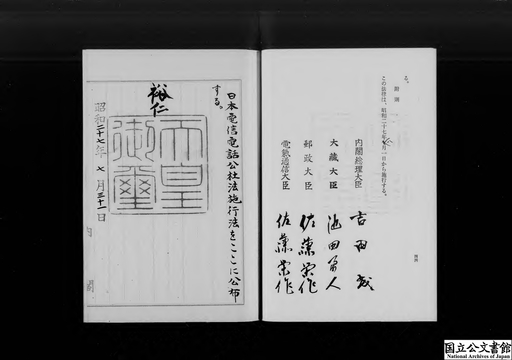 る。
附則
この法律は、昭和二十七年八月一日から施行する。
内閣総理大臣 吉田茂
大蔵大臣 池田勇人
郵政大臣 佐藤榮作
電気通信大臣 佐藤榮作
日本電信電話公社法施行法をここに公布
する。
裕仁
天皇
御璽
昭和二十七年七月三十一日
内閣
国立公文書館
National Archives of Japan